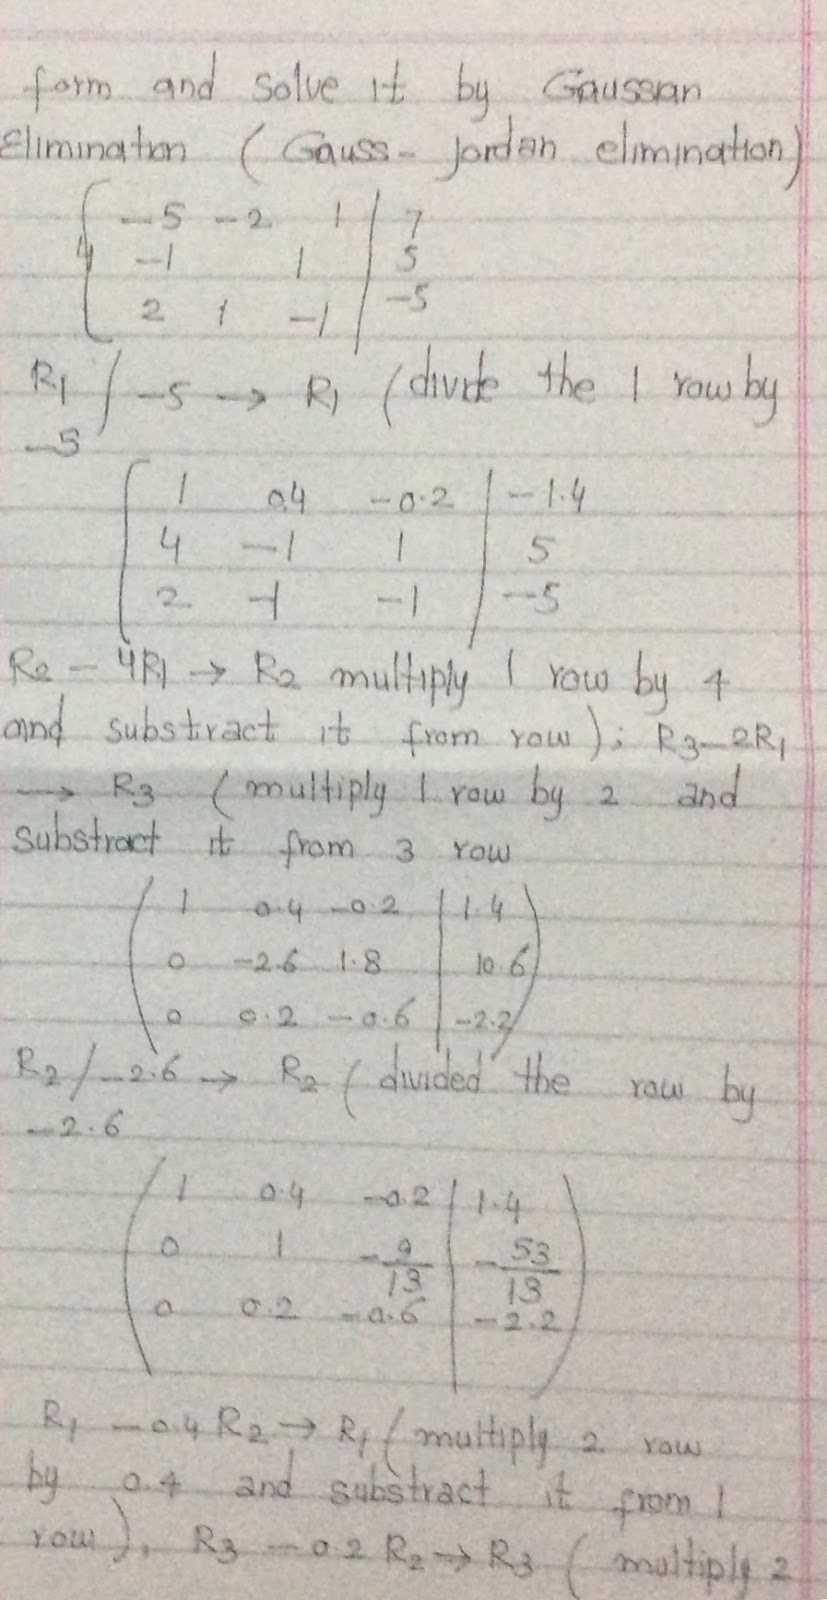 form and solve it by Gaussian
Elimination ( Gauss - Jordan elimination)
-5 -2 1 | 7
4 -1 1 | 5
2 1 -1 | -5
R1 / -5 → R1 ( divide the 1 row by
-5
1 0.4 -0.2 | -1.4
4 -1 1 | 5
2 -1 -1 | -5
R2 - 4R1 → R2 multiply 1 row by 4
and substract it from row ); R3-2R1
→ R3 ( multiply 1 row by 2 and
substract it from 3 row
1 0.4 -0.2 | 1.4
0 -2.6 1.8 | 10 6
0 0.2 -0.6 | -2.2
R2 / -2.6 → R2 ( divided the row by
-2.6
1 0.4 -0.2 | 1.4
0 1 -9/13 | -53/13
0 0.2 -0.6 | -2.2
R1 -0.4 R2 → R1 ( multiply 2 row
by 0.4 and substract it from 1
row ), R3 -0.2 R2 → R3 ( multiply 2